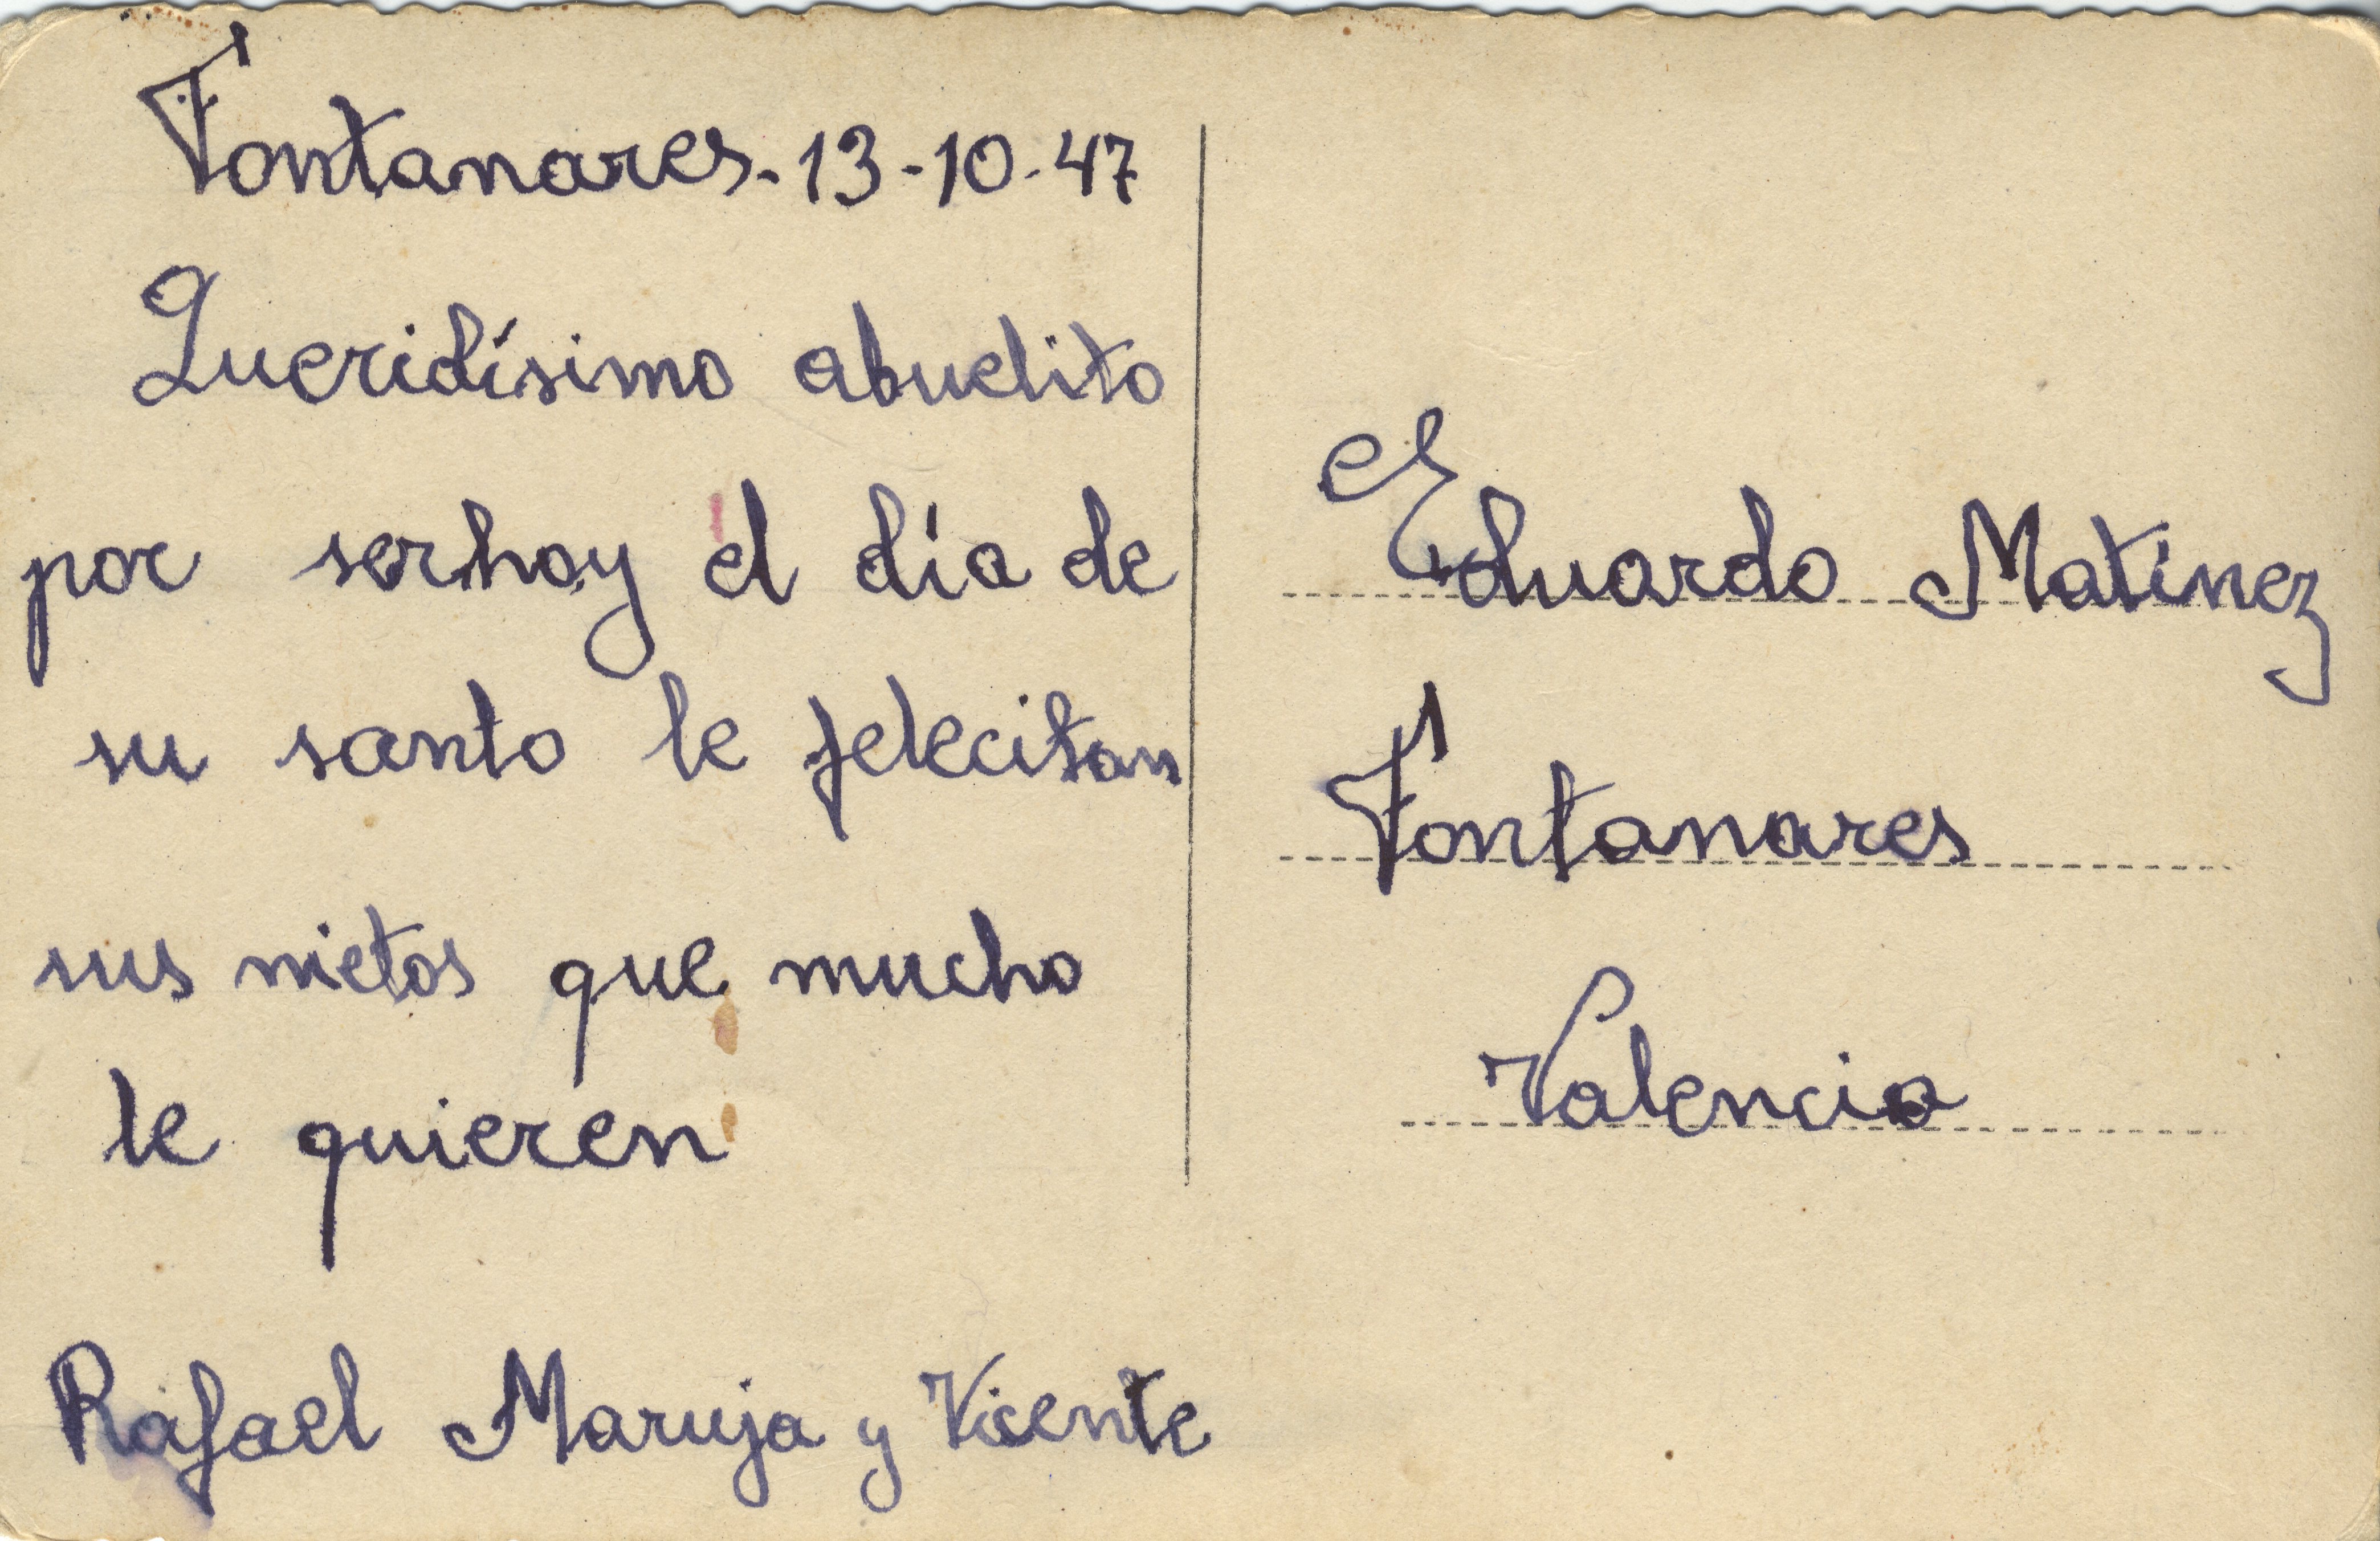 Fontanares.-13-10-47
Queridísimo abuelito
por ser hoy el día de
su santo le felecitan
sus nietos que mucho
le quieren
Rafael Maruja y Vicente
Eduardo Matinez
Fontanares
Valencia